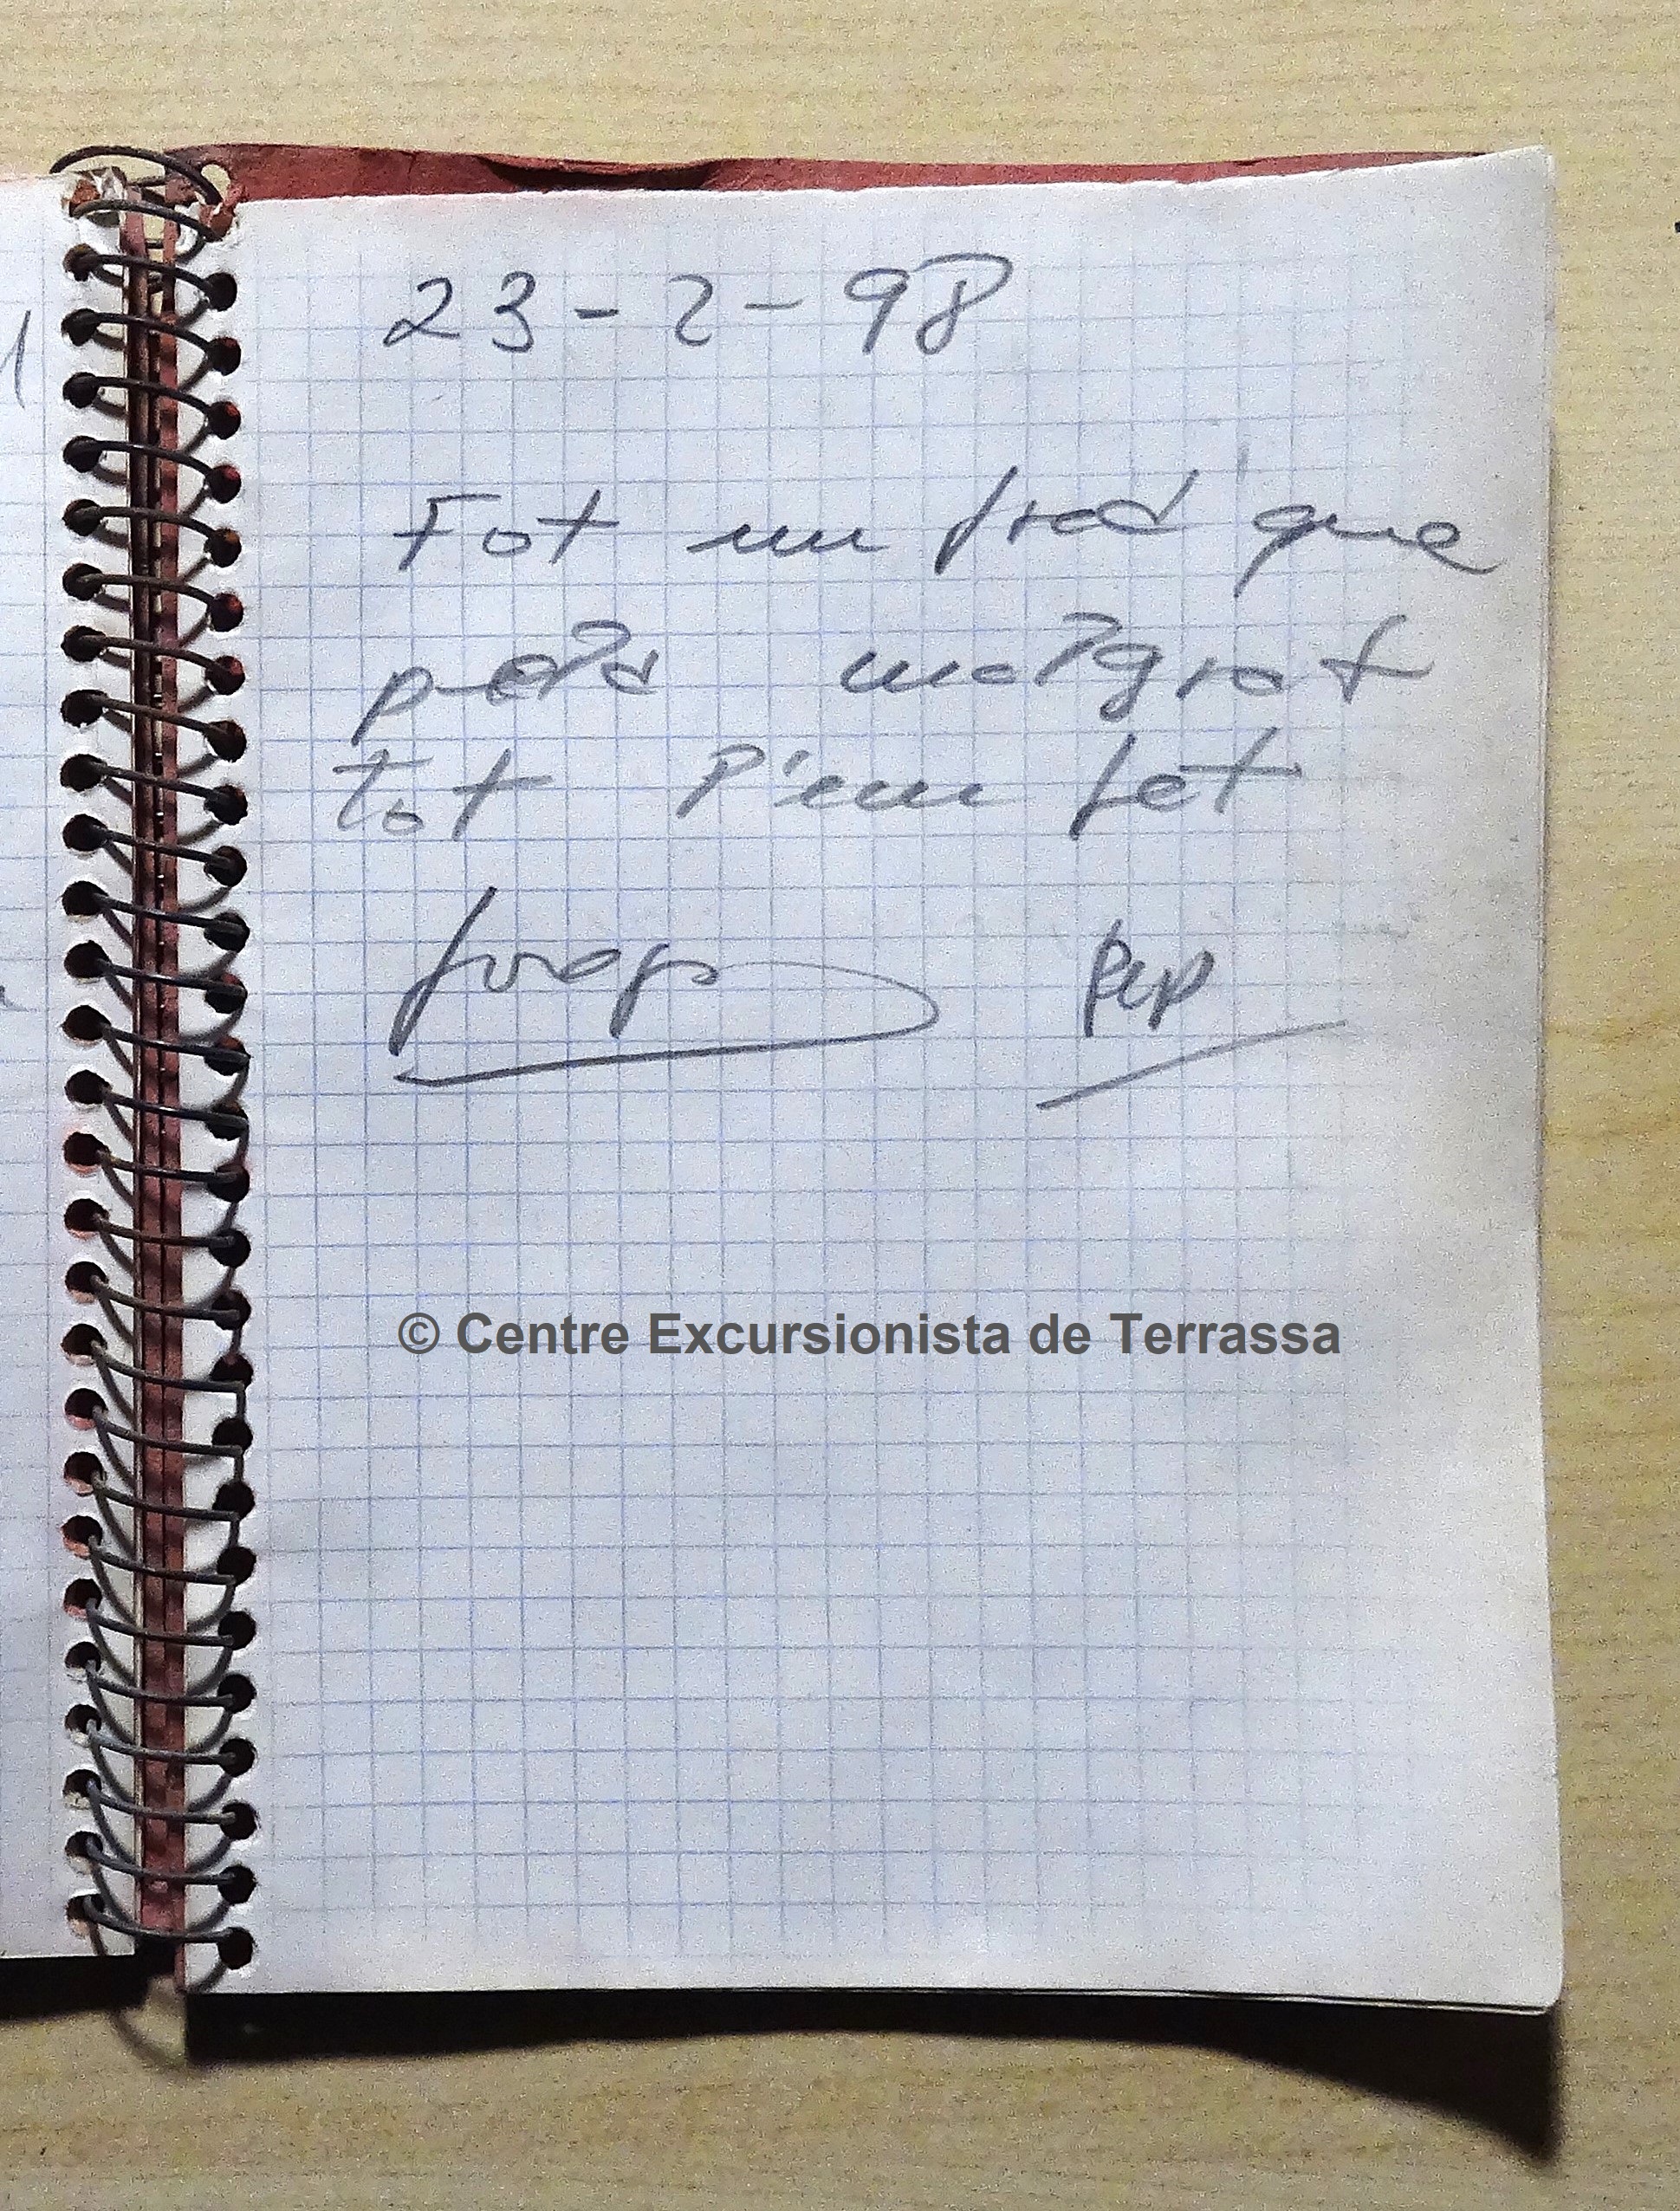 23-2-98
Fot un fred que
pela malgrat
tot l'em fet
Josep Pep
© Centre Excursionista de Terrassa